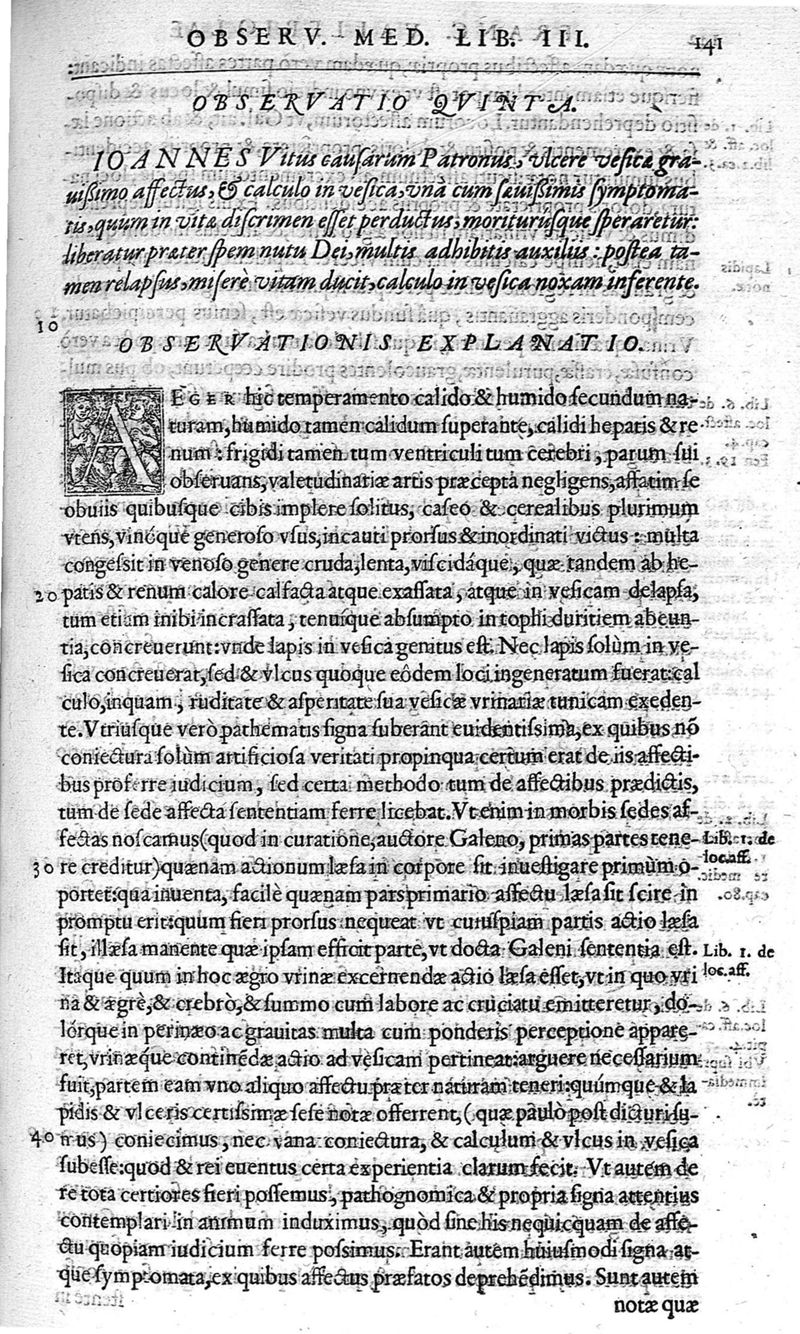 OBSERV. MED. LIB. III. 141
OBSERVATIO QVINTA.
IOANNES Vitus causarum Patronus, vlcere vesicæ gra-
uißimo affectus, & calculo in vesica, vnà cum sæuißimis symptoma-
tis, quum in vitæ discrimen esset perductus, moriturúsque speraretur:
liberatur præter spem nutu Dei, multis adhibitis auxiliis: postea ta-
men relapsus, miserè vitam ducit, calculo in vesica noxam inferente.
10
OBSERVATIONIS EXPLANATIO.
AEGER hic temperamento calido & humido secundum na-
turam, humido tamen calidum superante, calidi hepatis & re
num: frigidi tamen tum ventriculi tum cerebri, parum sui
obseruans, valetudinariæ artis præcepta negligens, affatim se
obuiis quibusque cibis implere solitus, caseo & cerealibus plurimum
vtens, vinóque generoso vsus, incauti prorsus & inordinati victus: multa
congessit in venoso genere cruda, lenta, viscidáque, quæ tandem ab he-
20 patis & renum calore calfacta atque exassata, atque in vesicam delapsa,
tum etiam inibi incrassata, tenuíque absumpto in tophi duritiem abeun-
tia, concreuerunt: vnde lapis in vesica genitus est. Nec lapis solùm in ve-
sica concreuerat, sed & vlcus quoque eôdem loci ingeneratum fuerat: cal
culo, inquam, ruditate & asperitate sua vesicæ vrinariæ tunicam exeden-
te. Vtriusque verò pathematis signa suberant euidentissima, ex quibus nõ
coniectura solùm artificiosa veritati propinqua certum erat de iis affecti-
bus proferre iudicium, sed certa methodo tum de affectibus prædictis,
tum de sede affecta sententiam ferre licebat. Vt enim in morbis sedes af-
fectas noscamus (quod in curatione, auctore Galeno, primas partes tene- Lib. 1. de
30 re creditur) quænam actionum læsa in corpore sit inuestigare primùm o- loc. aff.
portet: qua inuenta, facilè quænam pars primario affectu læsa sit scire in
promptu erit: quum fieri prorsus nequeat vt cuiuspiam partis actio læsa
sit, illæsa manente quæ ipsam efficit parte, vt docta Galeni sententia est. Lib. 1. de
Itaque quum in hoc ægro vrinæ excernendæ actio læsa esset, vt in quo vri loc. aff.
na & ægrè, & crebrò, & summo cum labore ac cruciatu emitteretur, do-
lórque in perinæo ac grauitas multa cum ponderis perceptione appare-
ret, vrinæque continẽdæ actio ad vesicam pertineat: arguere necessarium
fuit, partem eam vno aliquo affectu præter naturam teneri: quúmque & la
pidis & vlceris certissimæ sese notæ offerrent, (quæ paulò post dicturi su-
40 mus) coniecimus, nec vana coniectura, & calculum & vlcus in vesica
subesse: quod & rei euentus certa experientia clarum fecit. Vt autem de
re tota certiores fieri possemus, pathognomica & propria signa attentius
contemplari in animum induximus, quòd sine his nequicquam de affe-
ctu quopiam iudicium ferre possimus. Erant autem huiusmodi signa at-
que symptomata, ex quibus affectus præfatos deprehẽdimus. Sunt autem
notæ quæ